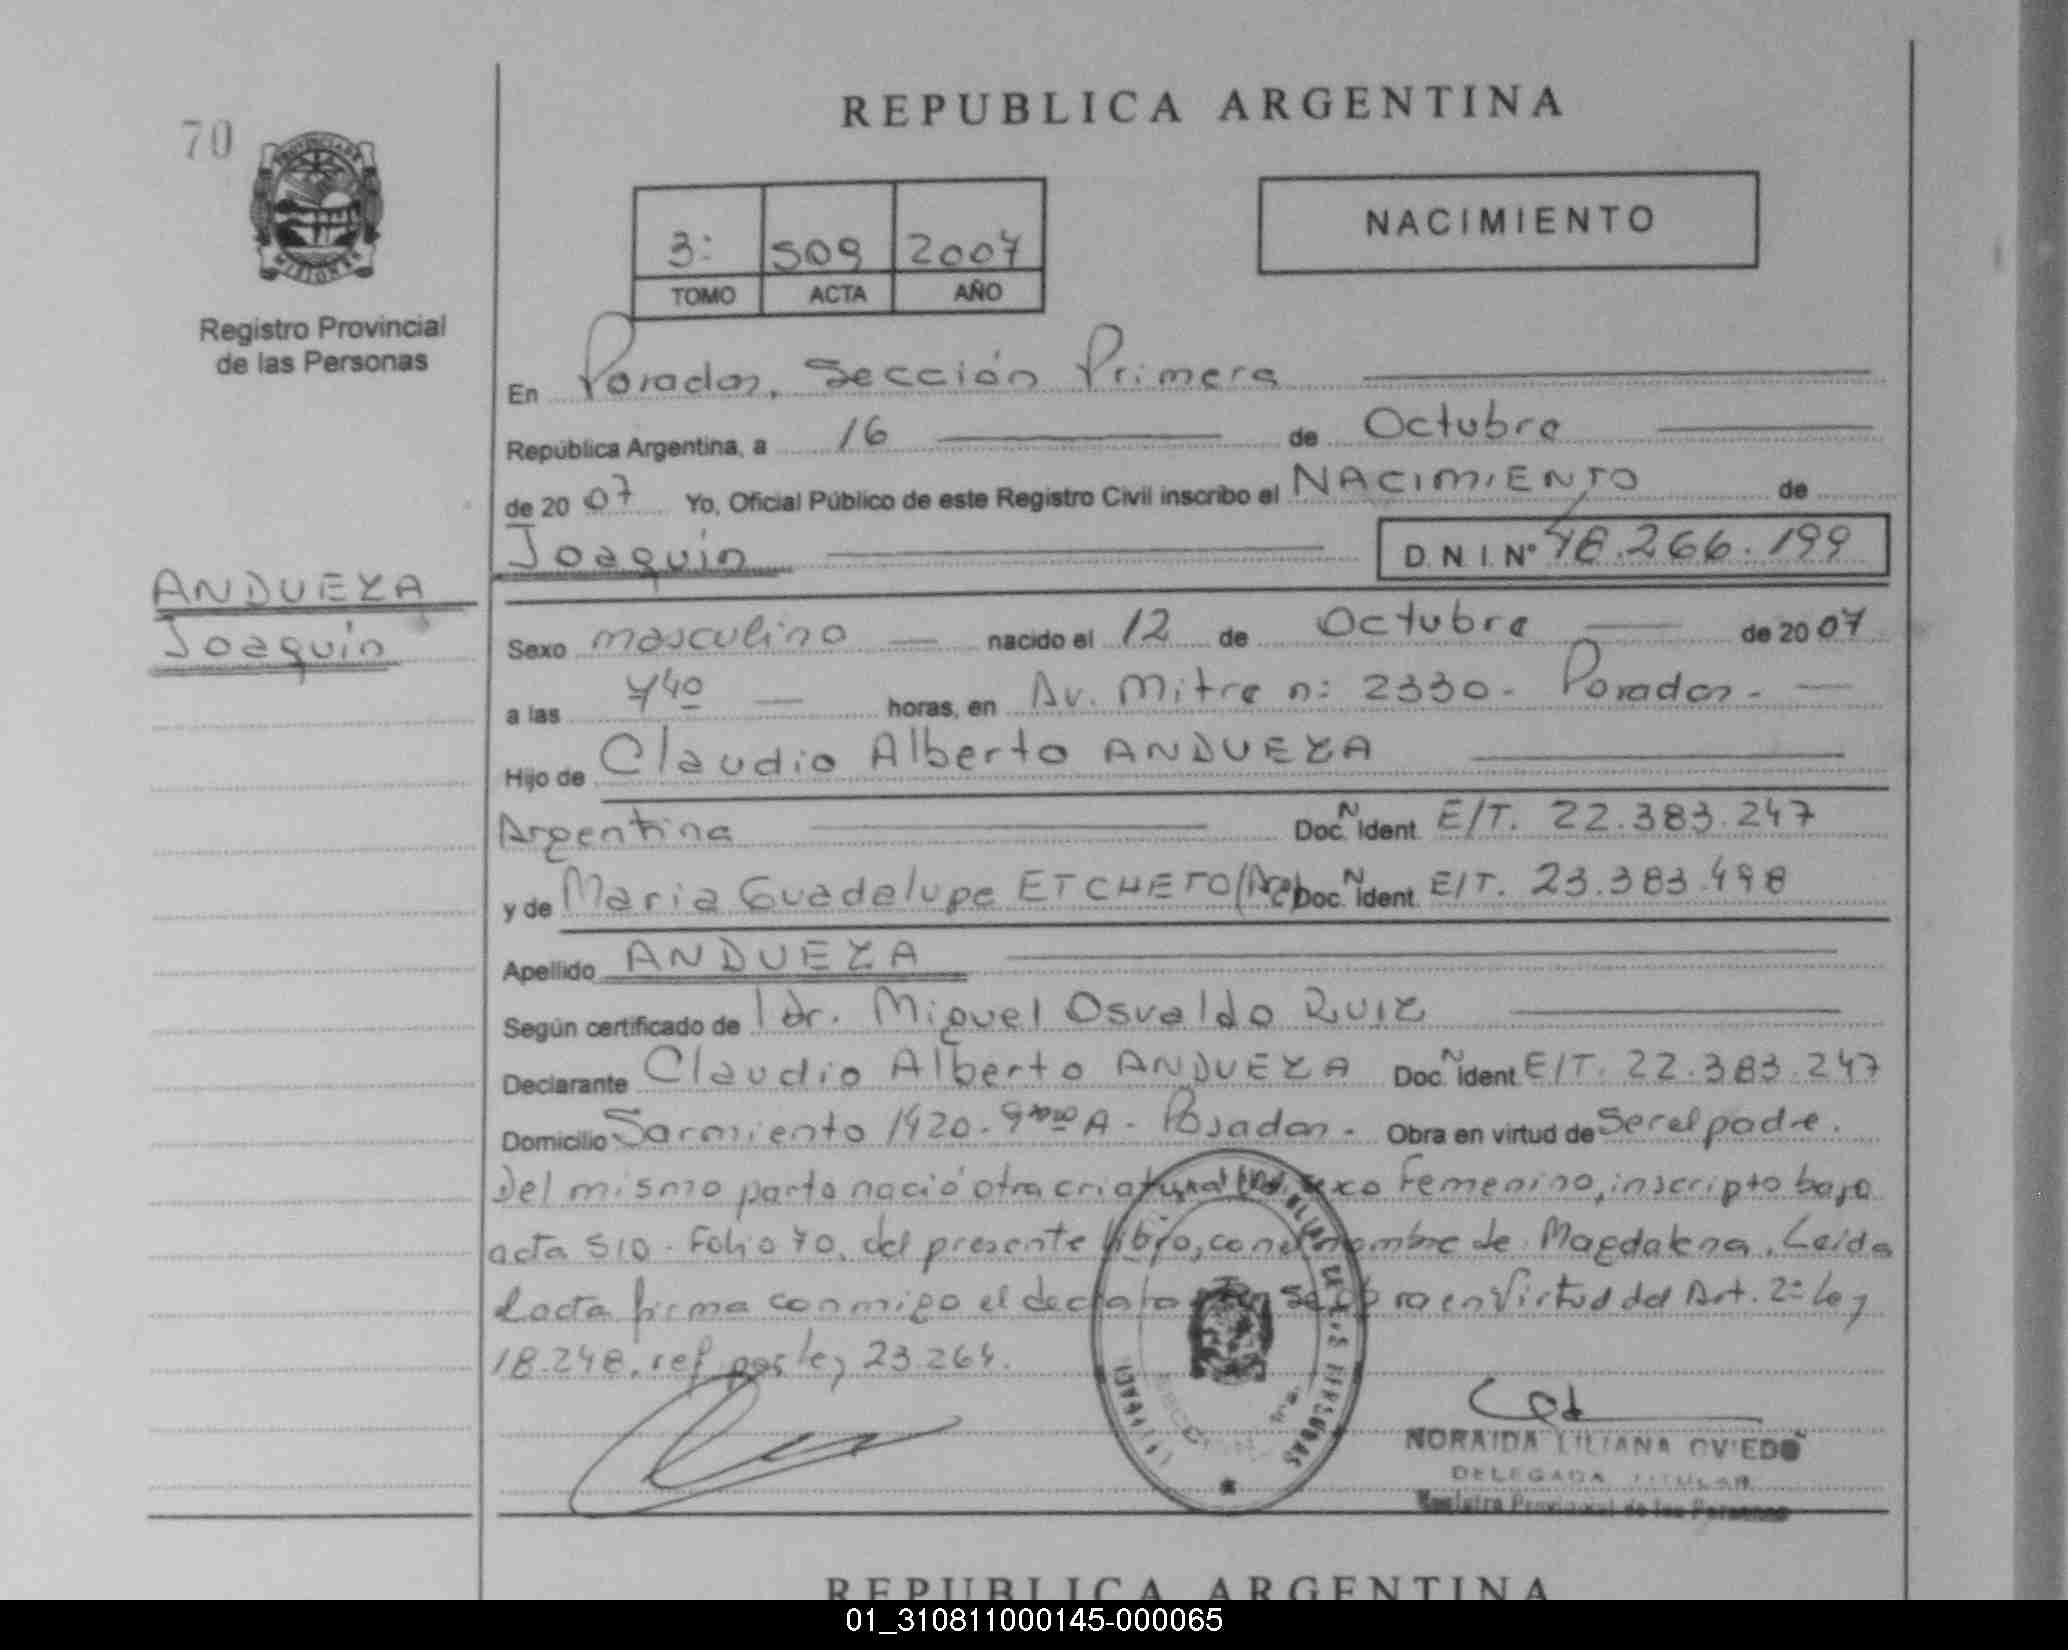 REPUBLICA ARGENTINA
70
PROVINCIA DE
MISIONES
Registro Provincial
de las Personas
3: 509 2007
TOMO ACTA AÑO
NACIMIENTO
En Posadas, Sección Primera
República Argentina, a 16 de Octubre
de 2007 Yo, Oficial Público de este Registro Civil inscribo el NACIMIENTO de
Joaquín D.N.I. Nº 48.266.199
ANDUEZA
Joaquín
Sexo masculino nacido el 12 de Octubre de 2007
a las 7 40 horas, en Av. Mitre nº 2330 - Posadas -
Hijo de Claudio Alberto ANDUEZA
Argentina Doc. N Ident. E/T. 22.383.247
y de María Guadalupe ETCHETO (Arg) Doc. N Ident. E/T. 23.383.498
Apellido ANDUEZA
Según certificado de Dr. Miguel Osvaldo RUIZ
Declarante Claudio Alberto ANDUEZA Doc. N Ident E/T. 22.383.247
Domicilio Sarmiento 1420 - 9 A - Posadas - Obra en virtud de Ser el padre.
Del mismo parto nació otra criatura del sexo Femenino, inscripto bajo
acta 510 - Folio 70, del presente libro, con el nombre de Magdalena. Leída
el acta firma conmigo el en virtud del Art. 2º Ley
18.248, ref. por ley 23.264.
NORAIDA LILIANA OVIEDO
DELEGADA TITULAR
Registro Provincial de las Personas
REPUBLICA ARGENTINA
01_310811000145-000065